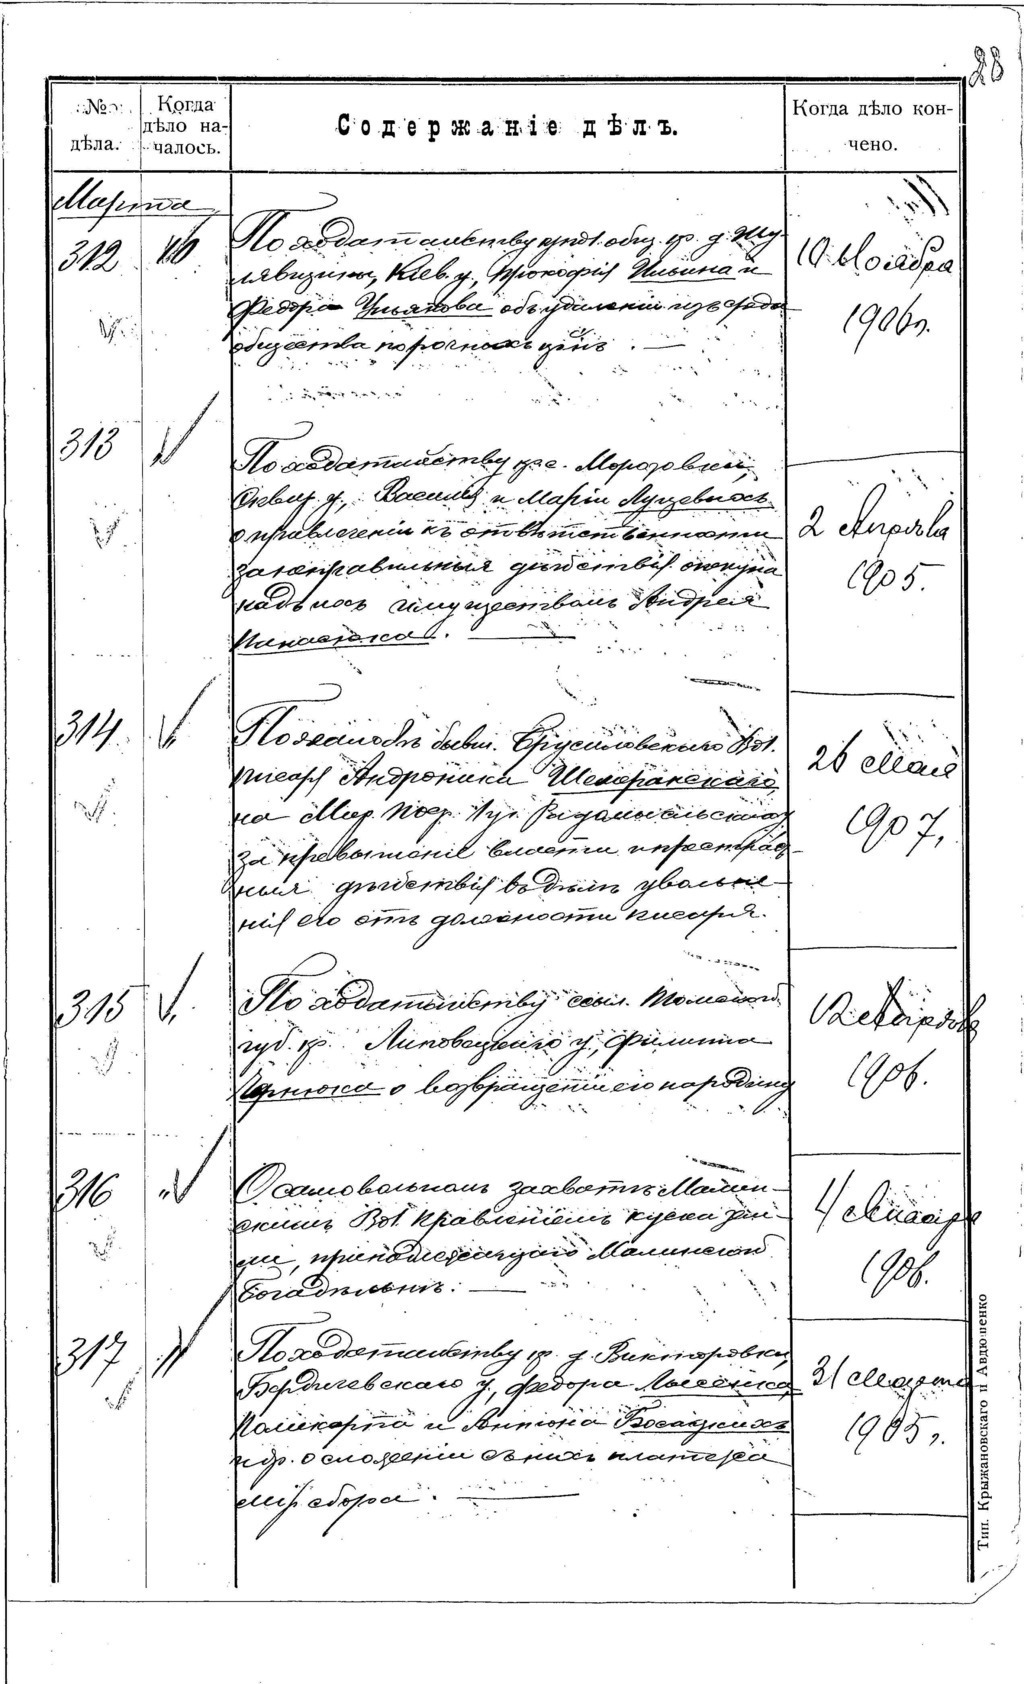 28
№ дѣла.
Когда дѣло началось.
Содержаніе дѣлъ.
Когда дѣло кончено.
Марта
312
По ходатайству упол. общ. кр. д. Жу-
лявизины, Кіев. у., Прокофія Ильина и
Федора Ульянова объ удаленіи изъ среды
общества порочныхъ член.
10 Ноября
1906 г.
313
По ходатайству кр. с. Морозовки,
Сквир. у., Василія и Маріи Луцевыхъ
о привлеченіи къ отвѣтственности
за неправильныя дѣйствія опекуна
надъ ихъ имуществомъ Андрея
Панасюка.
2 Апрѣля
1905.
314
По жалобѣ бывш. Брусиловскаго Вол.
писаря Андроника
на Мир. Поср. 1 уч. Радомысльскаго у.
за превышеніе власти и пристраст-
ныя дѣйствія въ дѣлѣ увольне-
нія его отъ должности писаря.
26 Мая
1907,
315
По ходатайству ссыл. Томской
губ. кр. Липовецкаго у., Филиппа
о возвращеніи его на родину
12 Апрѣля
1906.
316
О самовольномъ захватѣ Малин-
скимъ Вол. Правленіемъ куска зем-
ли, принадлежащаго Малинской
Богадѣльнѣ.
4 Января
1906.
317
По ходатайству кр. д. Викторовки,
Бердичевскаго у., Федора Лысенка,
Поликарпа и Антона Босацкихъ
и др. о сложеніи съ нихъ платежа
мір. сбора.
31 Марта
1905 г.
Тип. Крыжановскаго и Авдюшенко